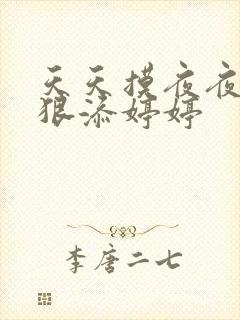 天天摸夜夜
狠添婷婷
李唐二七